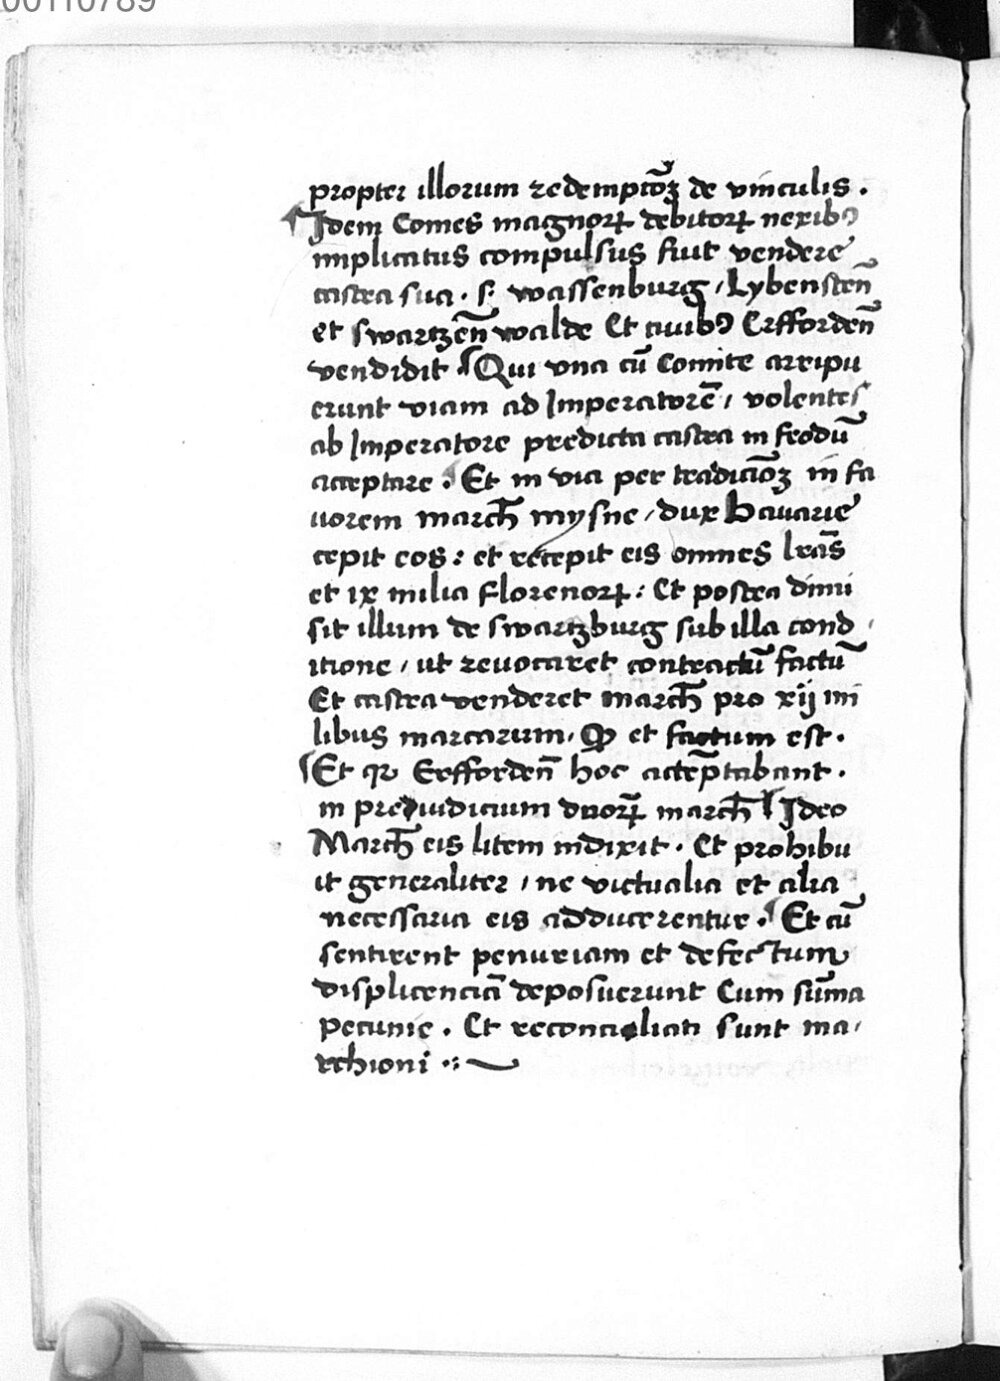 00110789
propter illorum redemptōꝫ de vinculis .
Idem Comes magnorꝝ debitorꝝ nexibꝰ
implicatus compulsus fuit vendere
castra sua . s: wassenburg / Lybensteñ
et swartzeñ walde Et ciuibꝰ Erffordeñ
vendidit ¶ Qui vna cū Comite arripu
erunt viam ad Imperatorē / volentes
ab Imperatore predicta castra in feodū
acceptare . Et in via per tradiciōꝫ in fa
uorem march̄ mysne / dux Bauarie
cepit eos : et recepit eis omnes lrās
et ix milia florenorꝝ : Et postea dimi
sit illum de swartzburg sub illa cond /
itione / ut reuocaret contractū factū
Et castra venderet march̄ pro xij mi
libus marcarum . Qᷓ et factum est .
¶ Et qꝛ Erffordeñ hoc acceptabant .
in preiudicium dnorꝝ march̄ ¶ Ideo
March̄ eis litem indixit . Et prohibu
it generaliter / ne victualia et alia
necessaria eis adducerentur . ¶ Et cū
sentirent penuriam et defectum
displicenciā deposuerunt Cum sūma
pecunie . Et reconciliati sunt ma/
rchioni